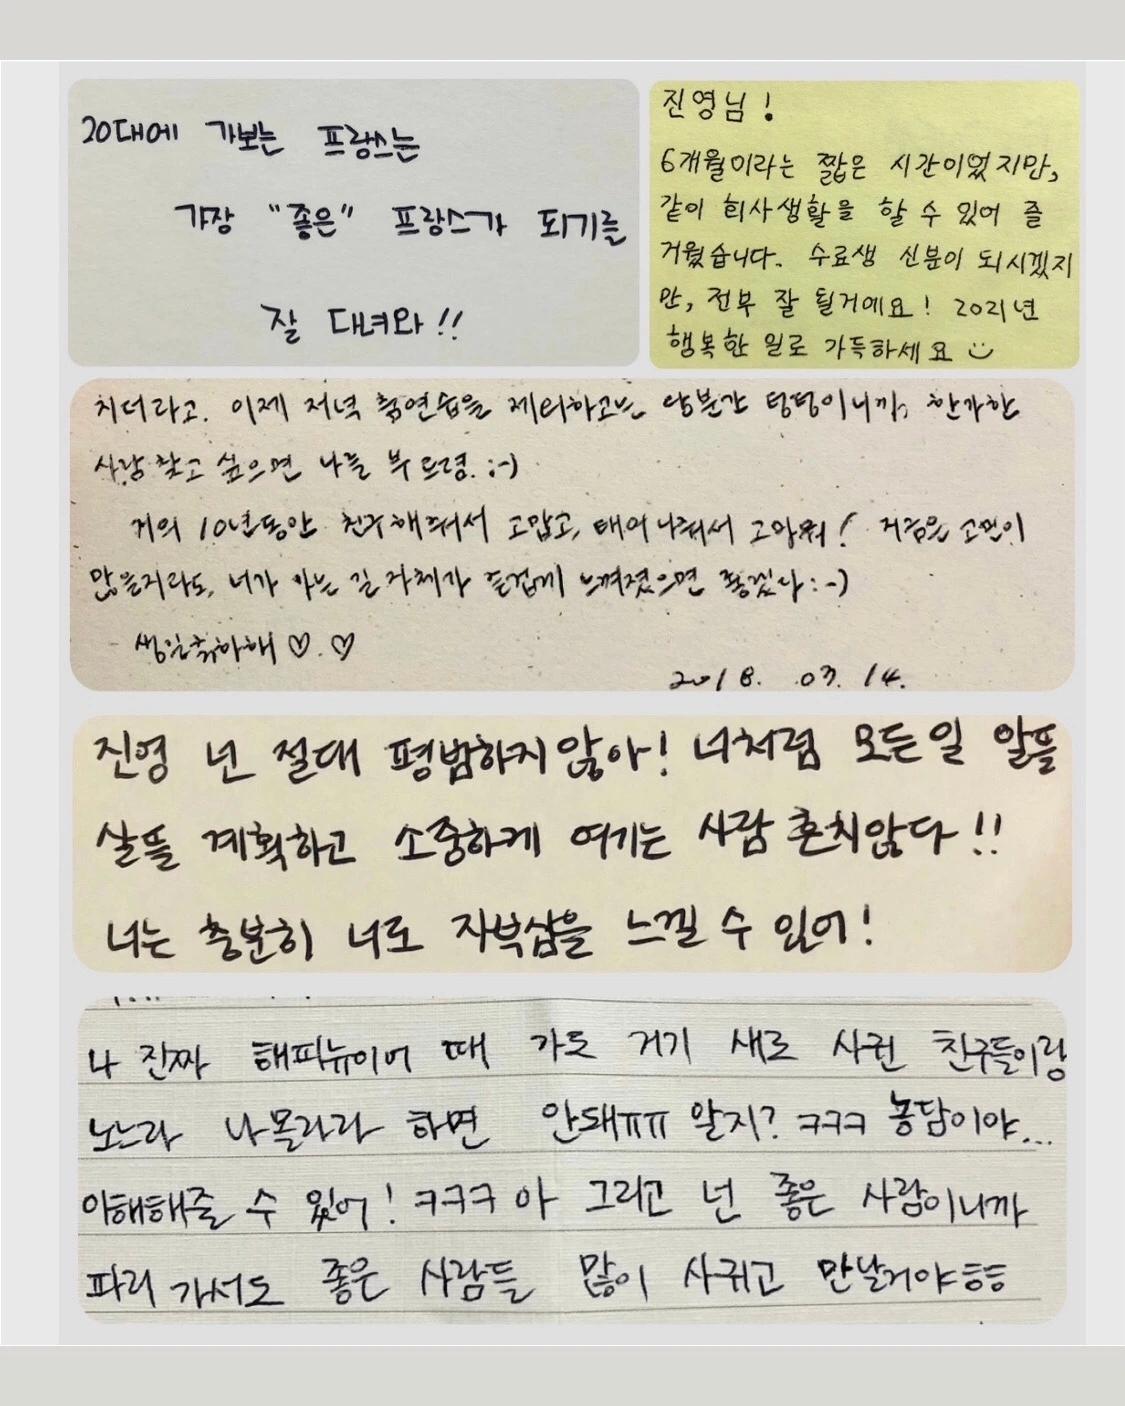 20대에 가보는 프랑스는
가장 "좋은" 프랑스가 되기를
잘 다녀와!!
진영님!
6개월이라는 짧은 시간이었지만,
같이 회사생활을 할 수 있어 즐
거웠습니다. 수료생 신분이 되시겠지
만, 전부 잘 될거에요! 2021년
행복한 일로 가득하세요
치더라고. 이제 저녁 춤연습을 제외하고는 당분간 텅텅이니까, 한가한
사람 찾고 싶으면 나를 부르렴. :-)
거의 10년동안 친구해줘서 고맙고, 태어나줘서 고마워! 지금은 고민이
많을지라도, 너가 가는 길 자체가 즐겁게 느껴졌으면 좋겠다 :-)
생일축하해 ♡.♡
2018. 03. 14.
진영 넌 절대 평범하지않아! 너처럼 모든일 알뜰
살뜰 계획하고 소중하게 여기는 사람 흔치않다!!
너는 충분히 너로 자부심을 느낄 수 있어!
나 진짜 해피뉴이어 때 가도 거기 새로 사귄 친구들이랑
노느라 나몰라라 하면 안돼ㅠㅠ 알지? ㅋㅋㅋ 농담이야...
이해해줄 수 있어! ㅋㅋㅋ 아 그리고 넌 좋은 사람이니까
파리 가서도 좋은 사람들 많이 사귀고 만날거야ㅎㅎ